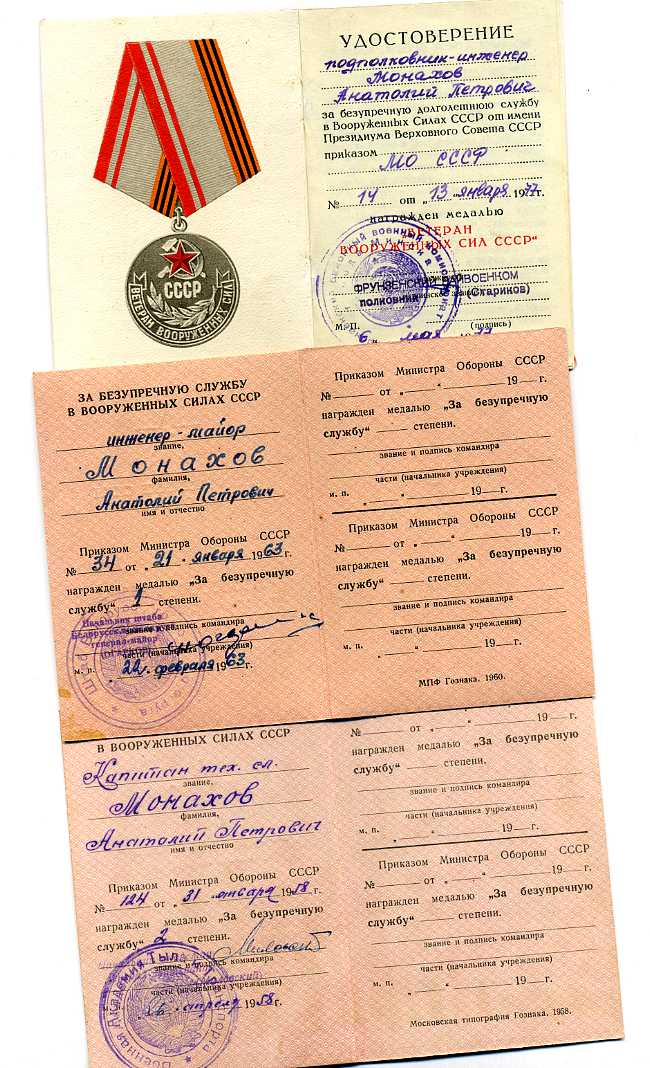 СССР
ВЕТЕРАН ВООРУЖЕННЫХ СИЛ
УДОСТОВЕРЕНИЕ
подполковник-инженер
Монахов
Анатолий Петрович
за безупречную долголетнюю службу
в Вооруженных Силах СССР от имени
Президиума Верховного Совета СССР
приказом МО СССР
№ 14 от „13 января 1977г.
награжден медалью
„ВЕТЕРАН
ВООРУЖЕННЫХ СИЛ СССР“
ФРУНЗЕНСКИЙ РАЙВОЕНКОМ
ПОЛКОВНИК (Стариков)
М. П. (подпись)
6 мая 77
ЗА БЕЗУПРЕЧНУЮ СЛУЖБУ
В ВООРУЖЕННЫХ СИЛАХ СССР
инженер-майор
звание,
Монахов
фамилия,
Анатолий Петрович
имя и отчество
Приказом Министра Обороны СССР
№ 34 от „21 января 1963г.
награжден медалью „За безупречную
службу“ 1 степени.
Начальник штаба
Белорусского
генерал-майор
звание и подпись командира
части (начальника учреждения)
м. п. „22 февраля 1963г.
Приказом Министра Обороны СССР
№ от „ “ 19 г.
награжден медалью „За безупречную
службу“ степени.
звание и подпись командира
части (начальника учреждения)
м. п. „ “ 19 г.
Приказом Министра Обороны СССР
№ от „ “ 19 г.
награжден медалью „За безупречную
службу“ степени.
звание и подпись командира
части (начальника учреждения)
м. п. „ “ 19 г.
МПФ Гознака. 1960.
В ВООРУЖЕННЫХ СИЛАХ СССР
Капитан тех. сл.
звание,
Монахов
фамилия,
Анатолий Петрович
имя и отчество
Приказом Министра Обороны СССР
№ 124 от „31 января 1958г.
награжден медалью „За безупречную
службу“ 2 степени.
звание и подпись командира
части (начальника учреждения)
апреля 1958г.
Военная Академия Тыла и
№ от „ “ 19 г.
награжден медалью „За безупречную
службу“ степени.
звание и подпись командира
части (начальника учреждения)
м. п. „ “ 19 г.
Приказом Министра Обороны СССР
№ от „ “ 19 г.
награжден медалью „За безупречную
службу“ степени.
звание и подпись командира
части (начальника учреждения)
м. п. „ “ 19 г.
Московская типография Гознака. 1958.